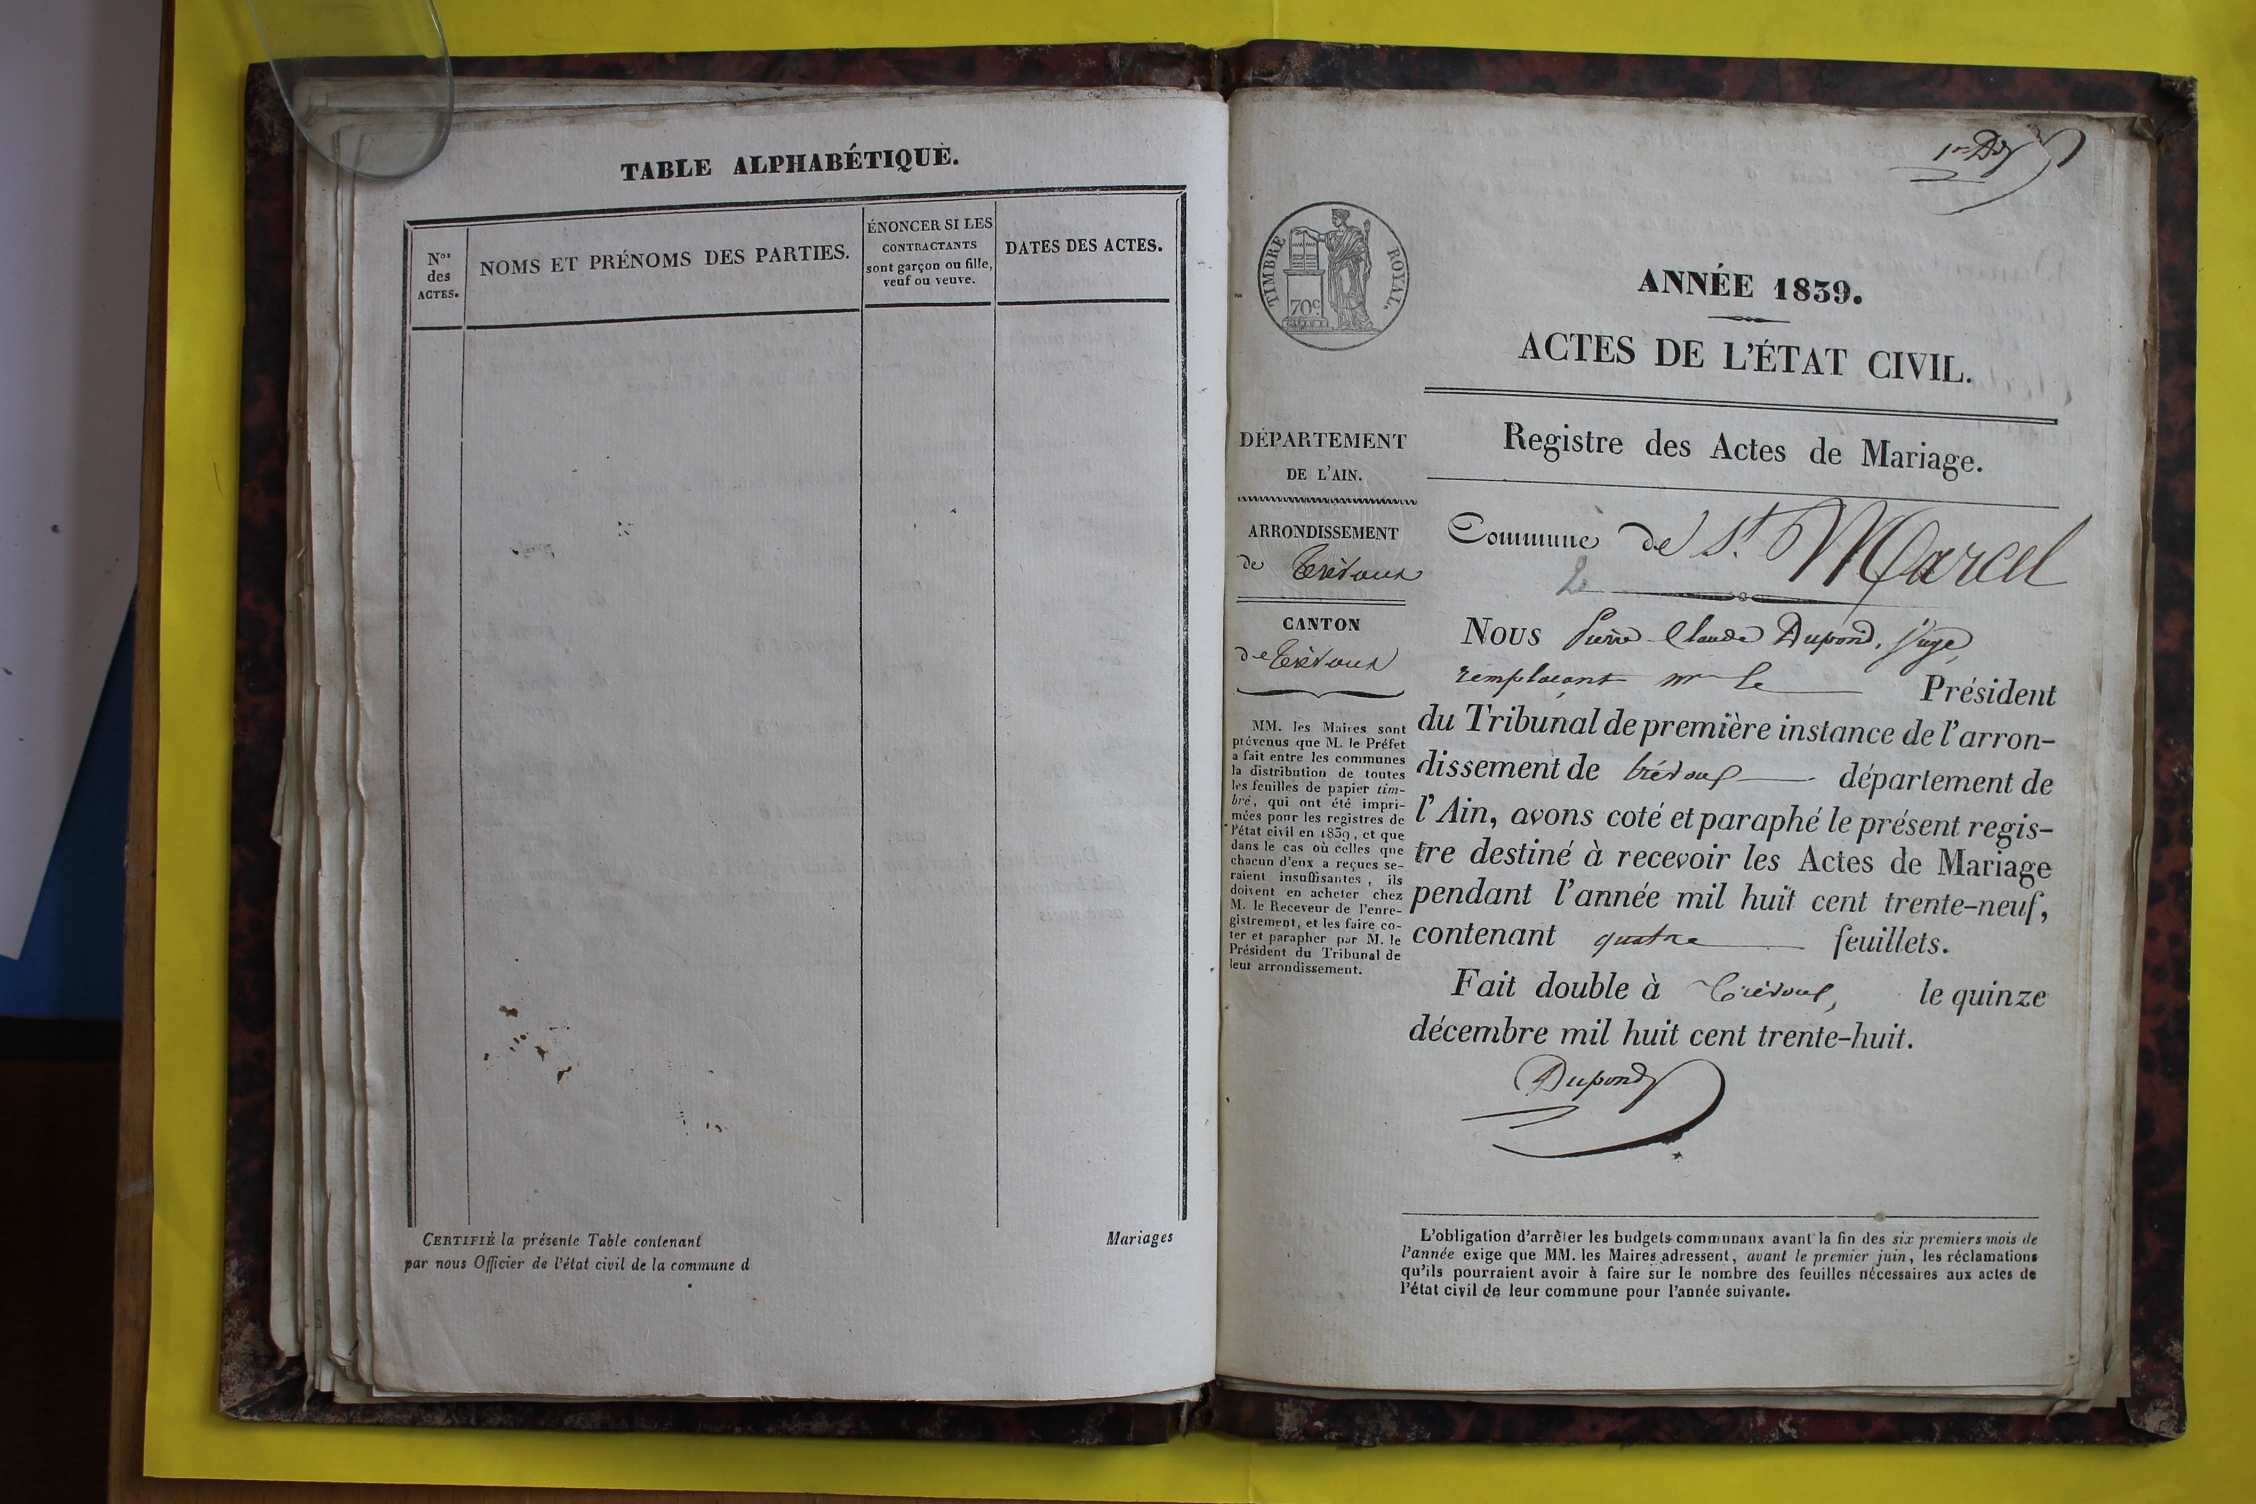 TABLE ALPHABÉTIQUE.
Nos
des
ACTES.
NOMS ET PRÉNOMS DES PARTIES.
ÉNONCER SI LES
CONTRACTANTS
sont garçon ou fille,
veuf ou veuve.
DATES DES ACTES.
CERTIFIÉ la présente Table contenant Mariages
par nous Officier de l'état civil de la commune d
TIMBRE ROYAL.
70c
ANNÉE 1839.
ACTES DE L'ÉTAT CIVIL.
Registre des Actes de Mariage.
DÉPARTEMENT
DE L'AIN.
ARRONDISSEMENT
de Trévoux
CANTON
de Trévoux
MM. les Maires sont
prévenus que M. le Préfet
a fait entre les communes
la distribution de toutes
les feuilles de papier tim-
bré, qui ont été impri-
mées pour les registres de
l'état civil en 1839, et que
dans le cas où celles que
chacun d'eux a reçues se-
raient insuffisantes, ils
doivent en acheter chez
M. le Receveur de l'enre-
gistrement, et les faire co-
ter et parapher par M. le
Président du Tribunal de
leur arrondissement.
Commune de St. Marcel
Nous Pierre Claude Dupond, juge,
remplaçant mr le Président
du Tribunal de première instance de l'arron-
dissement de trévoux département de
l'Ain, avons coté et paraphé le présent regis-
tre destiné à recevoir les Actes de Mariage
pendant l'année mil huit cent trente-neuf,
contenant quatre feuillets.
Fait double à Trévoux, le quinze
décembre mil huit cent trente-huit.
Dupond
L'obligation d'arrêter les budgets communaux avant la fin des six premiers mois de
l'année exige que MM. les Maires adressent, avant le premier juin, les réclamations
qu'ils pourraient avoir à faire sur le nombre des feuilles nécessaires aux actes de
l'état civil de leur commune pour l'année suivante.